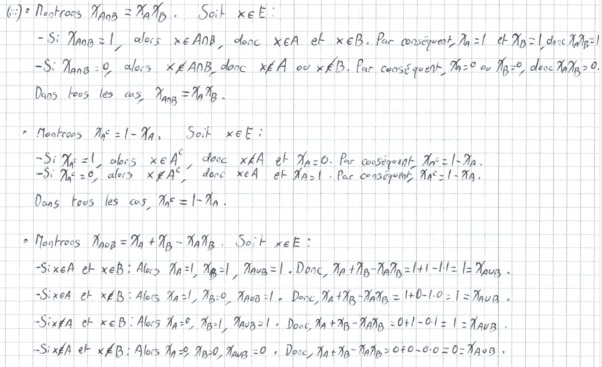 (ii) • Montrons χ_{A∩B} = χ_Aχ_B. Soit x∈E :
-Si χ_{A∩B} = 1, alors x∈A∩B, donc x∈A et x∈B. Par conséquent, χ_A=1 et χ_B=1, donc χ_Aχ_B=1
-Si χ_{A∩B} = 0, alors x∉A∩B, donc x∉A ou x∉B. Par conséquent, χ_A=0 ou χ_B=0, donc χ_Aχ_B=0.
Dans tous les cas, χ_{A∩B} = χ_Aχ_B.
• Montrons χ_{A^c} = 1-χ_A. Soit x∈E :
-Si χ_{A^c} = 1, alors x∈A^c, donc x∉A et χ_A=0. Par conséquent, χ_{A^c} = 1-χ_A.
-Si χ_{A^c} = 0, alors x∉A^c, donc x∈A et χ_A=1. Par conséquent, χ_{A^c} = 1-χ_A.
Dans tous les cas, χ_{A^c} = 1-χ_A.
• Montrons χ_{A∪B} = χ_A + χ_B - χ_Aχ_B. Soit x∈E :
-Si x∈A et x∈B : Alors χ_A=1, χ_B=1, χ_{A∪B}=1. Donc, χ_A+χ_B-χ_Aχ_B = 1+1-1·1 = 1 = χ_{A∪B}.
-Si x∈A et x∉B : Alors χ_A=1, χ_B=0, χ_{A∪B}=1. Donc, χ_A+χ_B-χ_Aχ_B = 1+0-1·0 = 1 = χ_{A∪B}.
-Si x∉A et x∈B : Alors χ_A=0, χ_B=1, χ_{A∪B}=1. Donc, χ_A+χ_B-χ_Aχ_B = 0+1-0·1 = 1 = χ_{A∪B}.
-Si x∉A et x∉B : Alors χ_A=0, χ_B=0, χ_{A∪B}=0. Donc, χ_A+χ_B-χ_Aχ_B = 0+0-0·0 = 0 = χ_{A∪B}.